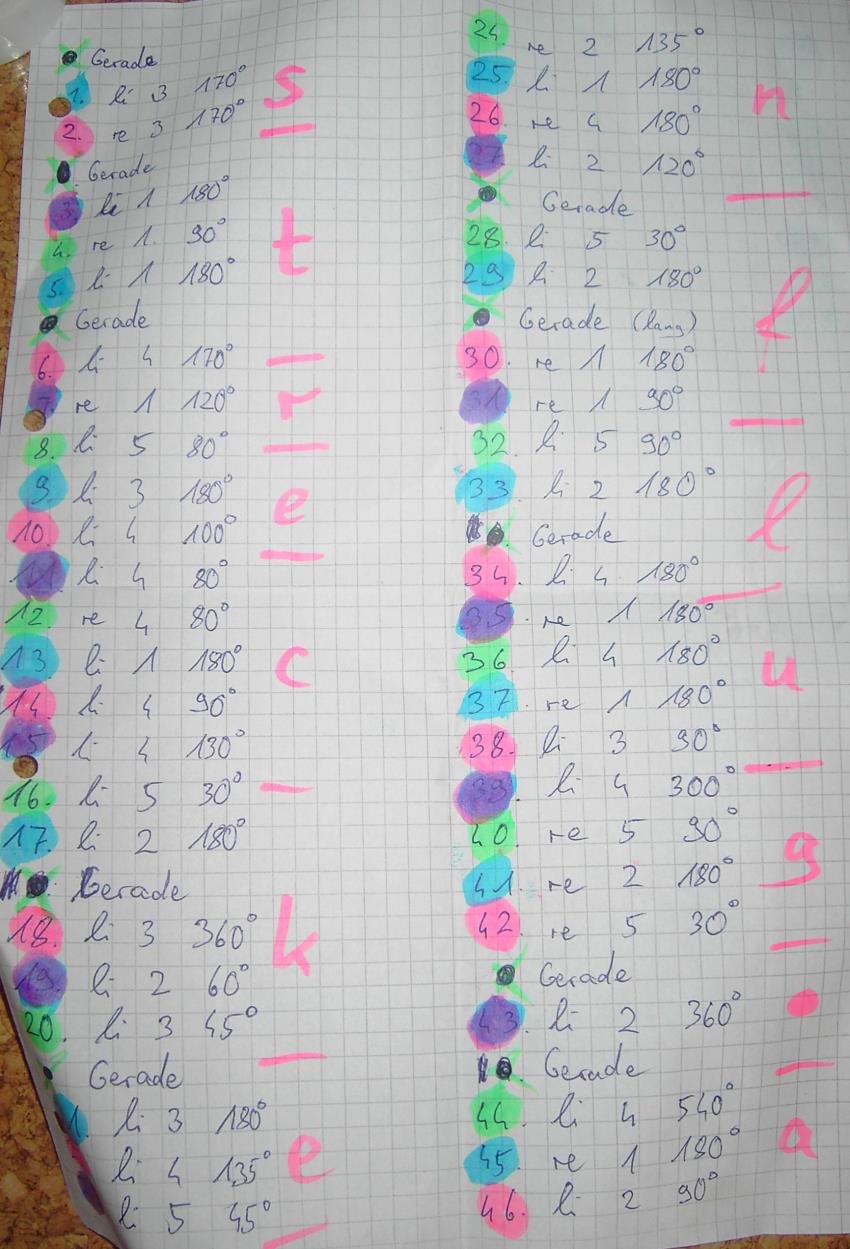 Gerade
1. li 3 170°
2. re 3 170°
s
Gerade
3. li 1 180°
4. re 1. 90°
5. li 1 180°
t
Gerade
6. li 4 170°
7. re 1 120°
r
8. li 5 80°
9. li 3 180°
10. li 4 100°
e
11. li 4 80°
12. re 4 80°
13 li 1 180°
14. li 4 90°
15 li 4 130°
c
16. li 5 30°
17. li 2 180°
Gerade
18. li 3 360°
19. li 2 60°
20. li 3 45°
k
Gerade
1. li 3 180°
li 4 135°
li 5 45°
e
24. re 2 135°
25. li 1 180°
26. re 4 180°
27. li 2 120°
n
Gerade
28. li 5 30°
29. li 2 180°
Gerade (lang)
30. re 1 180°
31. re 1 90°
f
32. li 5 90°
33. li 2 180°
Gerade
34. li 4 180°
l
35. re 1 180°
36 li 4 180°
37. re 1 180°
38. li 3 90°
u
39. li 4 300°
40. re 5 90°
41. re 2 180°
42. re 5 30°
g
Gerade
43. li 2 360°
Gerade
44. li 4 540°
45. re 1 180°
46. li 2 90°
a